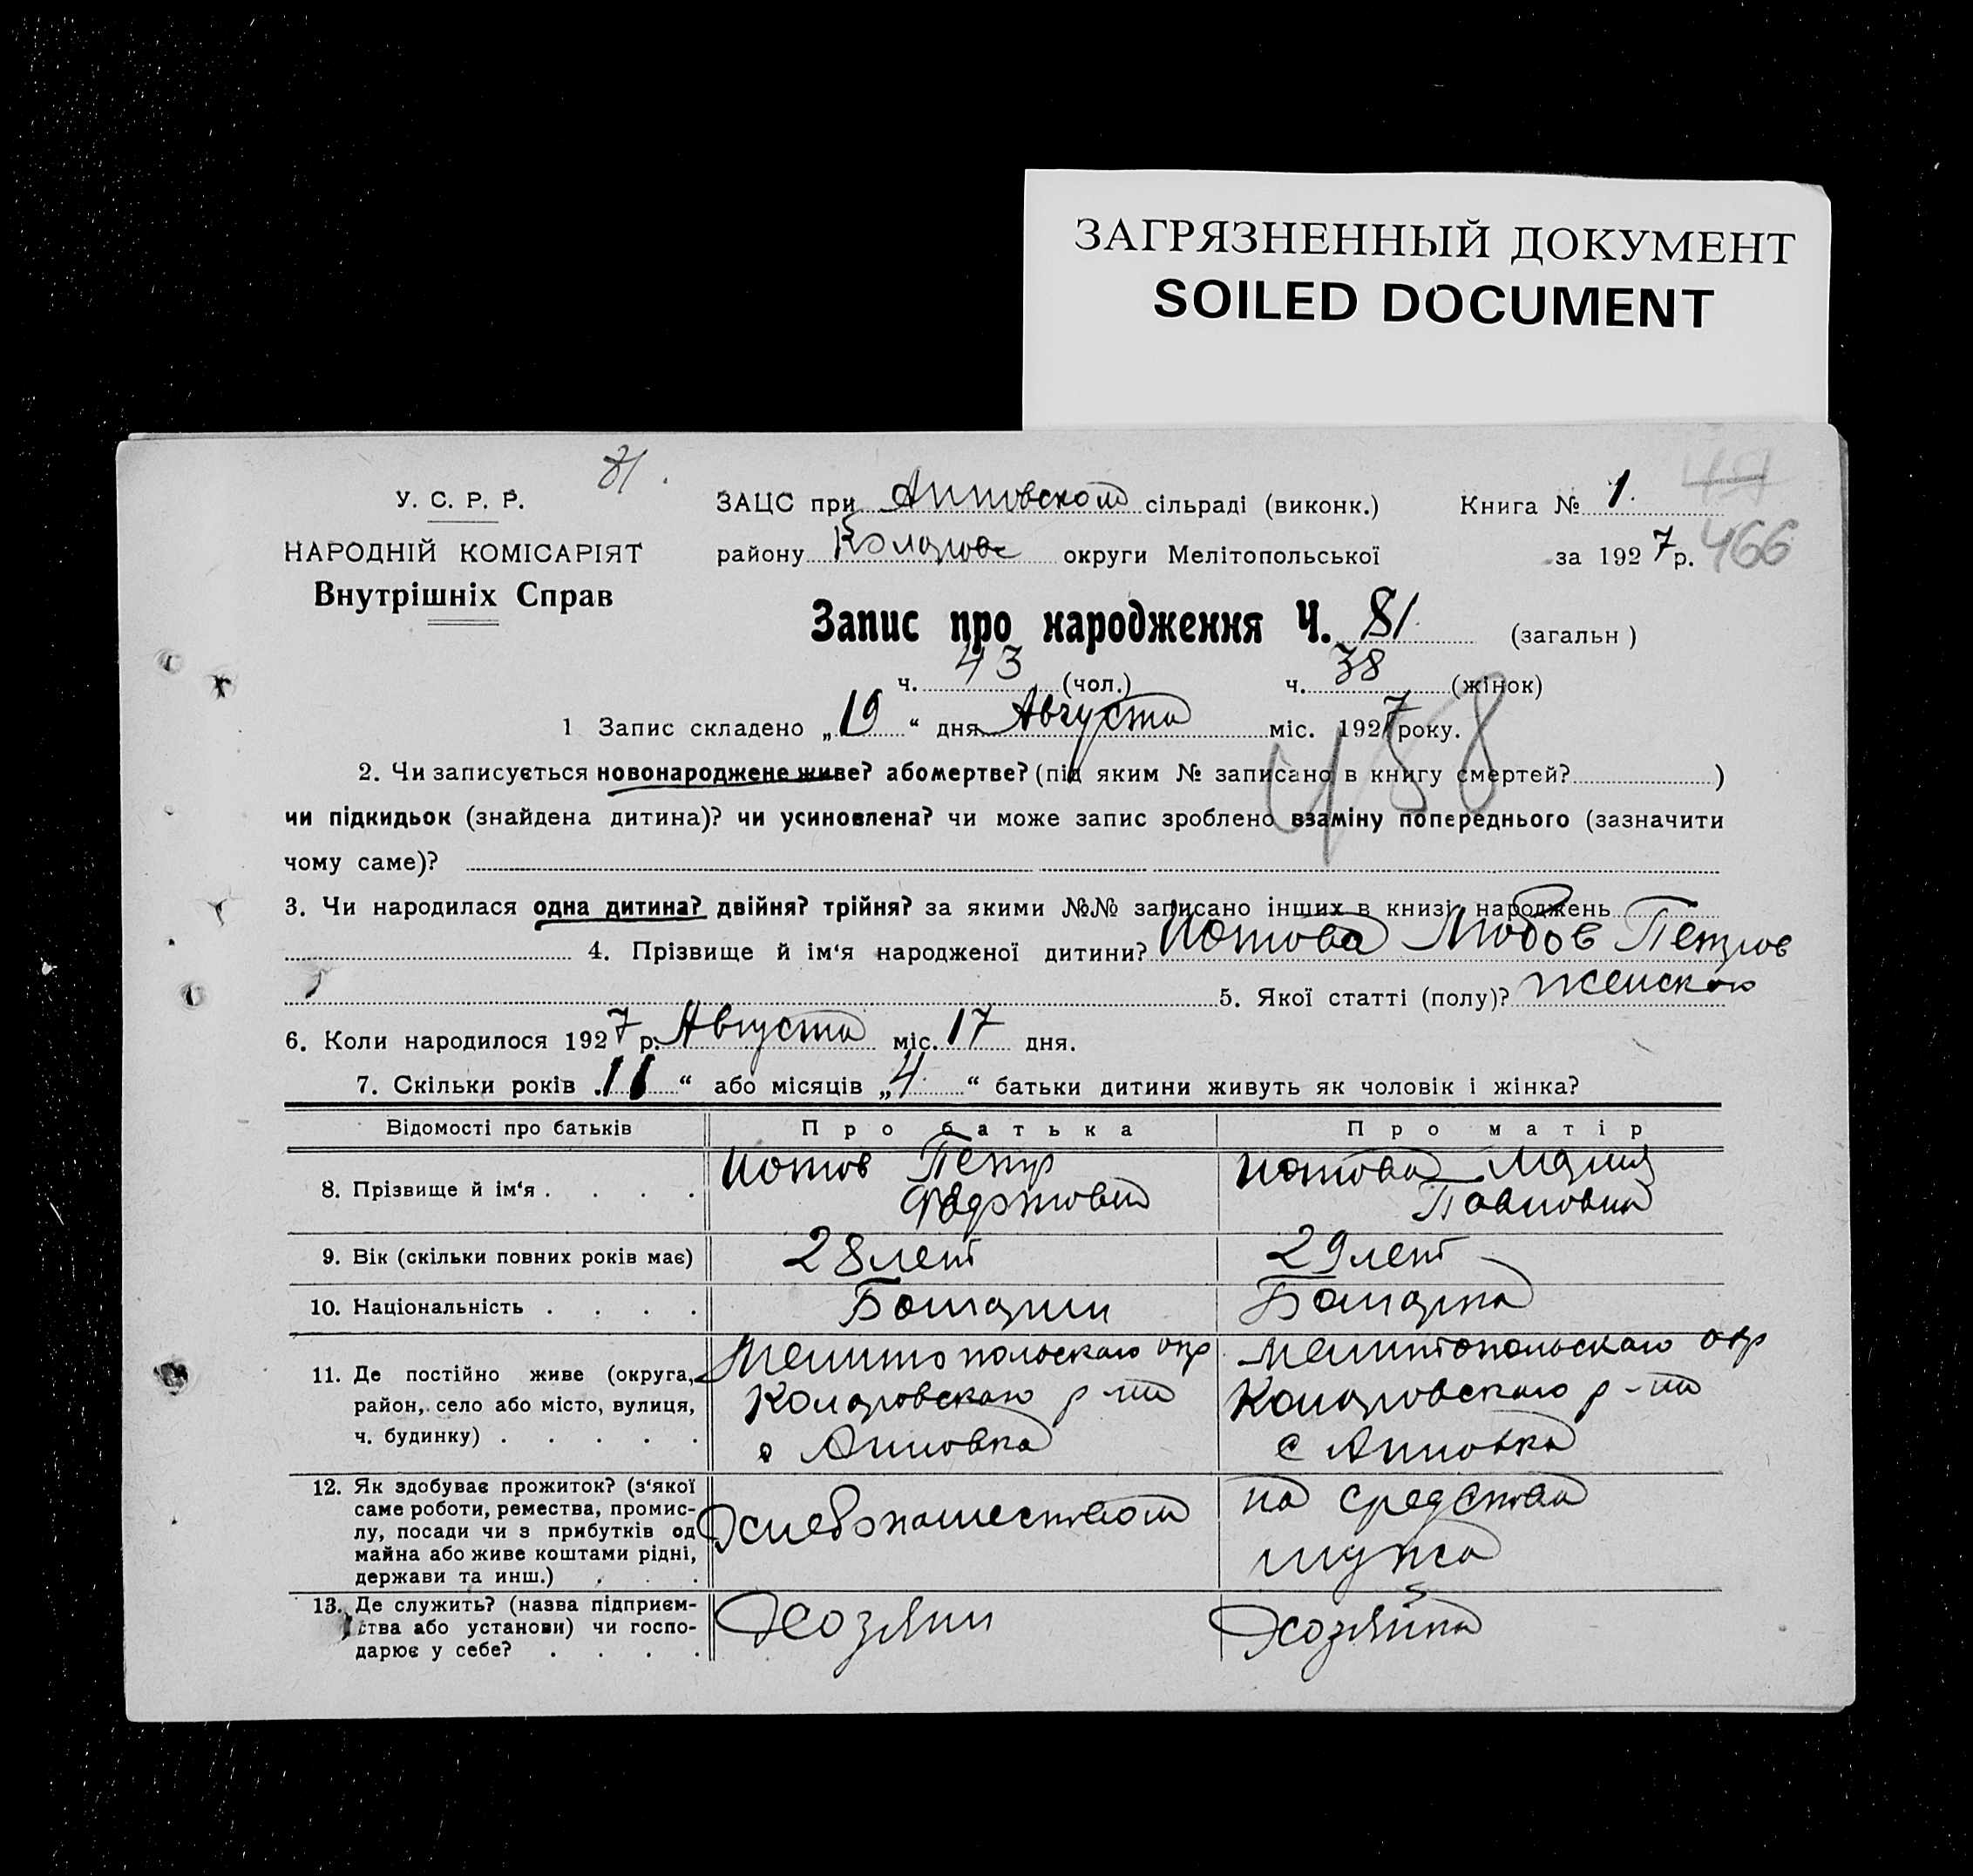 ЗАГРЯЗНЕННЫЙ ДОКУМЕНТ
SOILED DOCUMENT
81.
У. С. Р. Р.
НАРОДНІЙ КОМІСАРІЯТ
Внутрішніх Справ
ЗАЦС при Анновском сільраді (виконк.) Книга № 1. 47
району Коларовс округи Мелітопольської за 1927 р. 466
Запис про народження Ч. 81 (загальн)
ч. 43 (чол.) ч. 38 (жінок)
1 Запис складено „19“ дня Августа міс. 1927 року.
458
2. Чи записується новонароджене живе? або мертве? (під яким № записано в книгу смертей? )
чи підкидьок (знайдена дитина)? чи усиновлена? чи може запис зроблено взаміну попереднього (зазначити
чому саме)?
3. Чи народилася одна дитина? двійня? трійня? за якими №№ записано інших в книзі народжень
4. Прізвище й ім‘я народженої дитини? Иотова Любов Петров
5. Якої статті (полу)? женского
6. Коли народилося 1927 р. Августа міс. 17 дня.
7. Скільки років „11“ або місяців „4“ батьки дитини живуть як чоловік і жінка?
Відомості про батьків Про батька Про матір
8. Прізвище й ім‘я . . . . Иотов Петр Иотова Мария
Павловна
9. Вік (скільки повних років має) 28 лет 29 лет
10. Національність . . . . Болгарин Болгарка
11. Де постійно живе (округа, район, село або місто, вулиця, ч. будинку) . . . . .
Мелитопольскаго окр Мелитопольскаго окр
Коларовскаго р-на Коларовскаго р-на
с Анновка с Анновка
12. Як здобуває прожиток? (з‘якої
саме роботи, ремества, промис-
лу, посади чи з прибутків од
майна або живе коштами рідні,
держави та инш.) . . .
Хлебопашеством на средства
мужа
13. Де служить? (назва підприєм-
ства або установи) чи госпо-
дарює у себе? . . . .
Хозяин Хозяйка